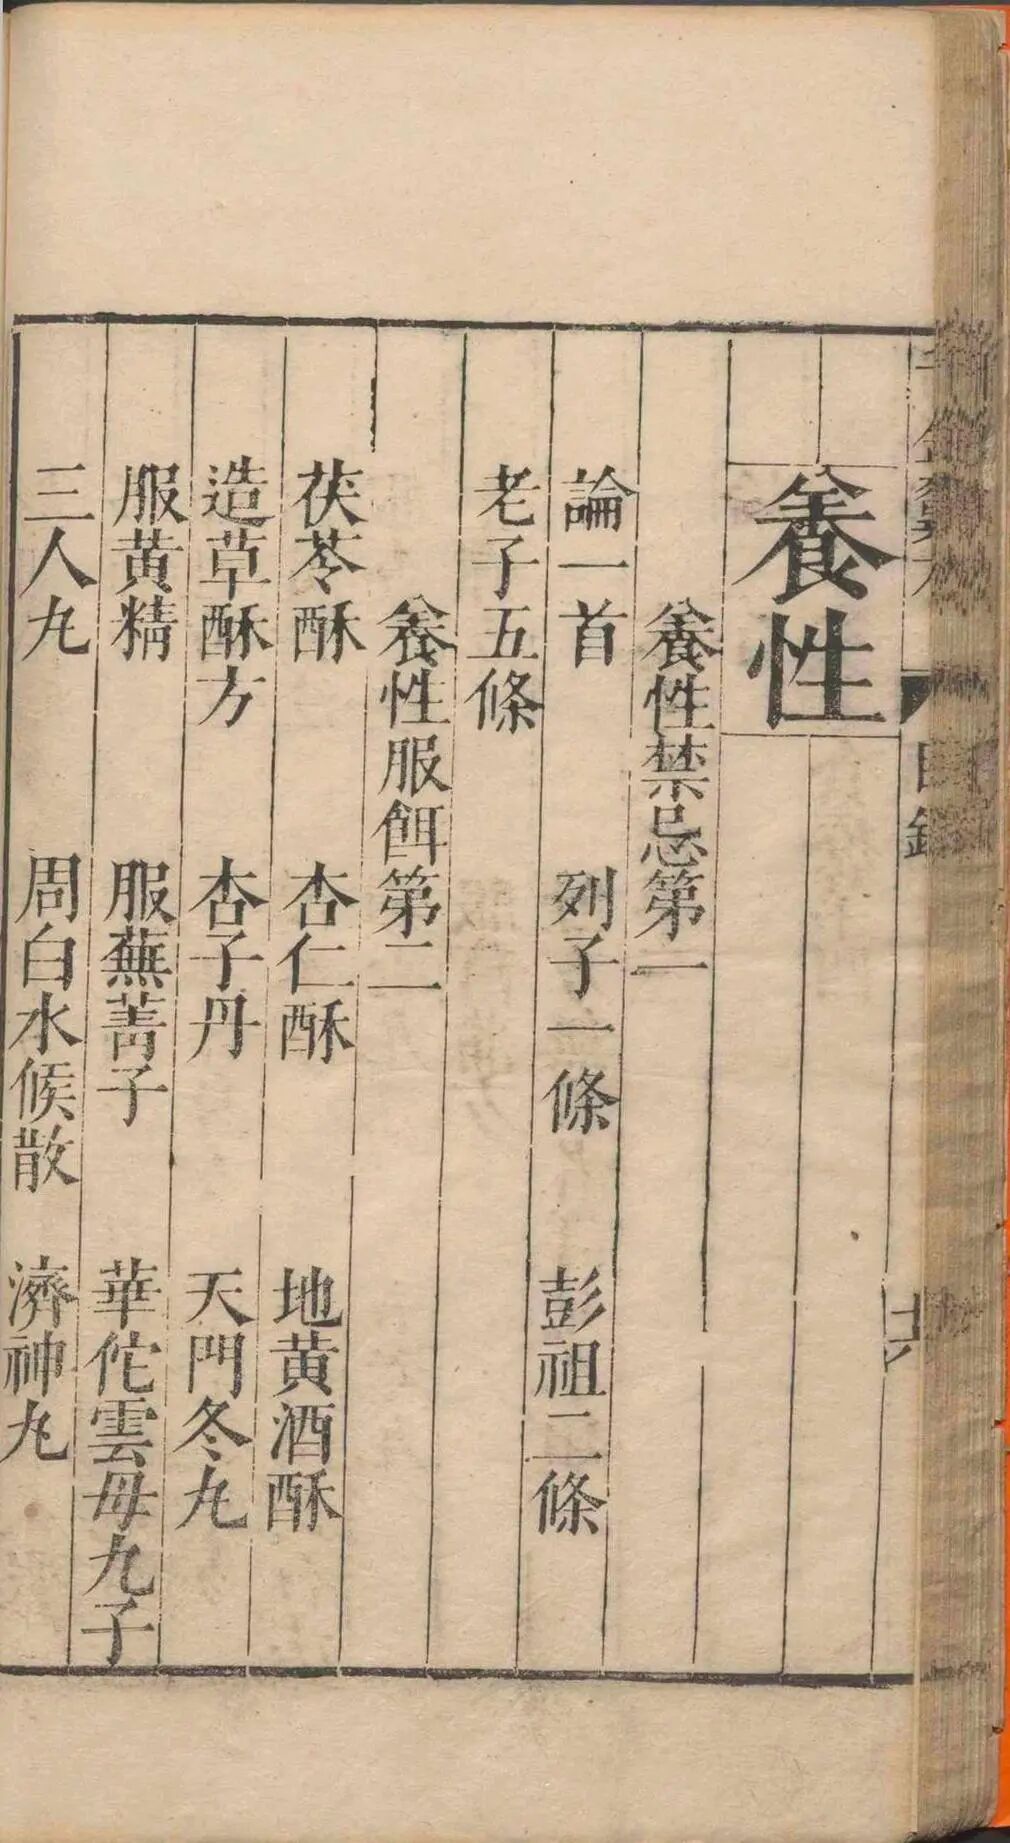 養性
養性禁忌第一
論一首 列子一條 彭祖二條
老子五條
養性服餌第二
茯苓酥 杏仁酥 地黄酒酥
造草酥方 杏子丹 天門冬丸
服黄精 服蕪菁子 華佗雲母丸子
三人丸 周白水候散 濟神丸